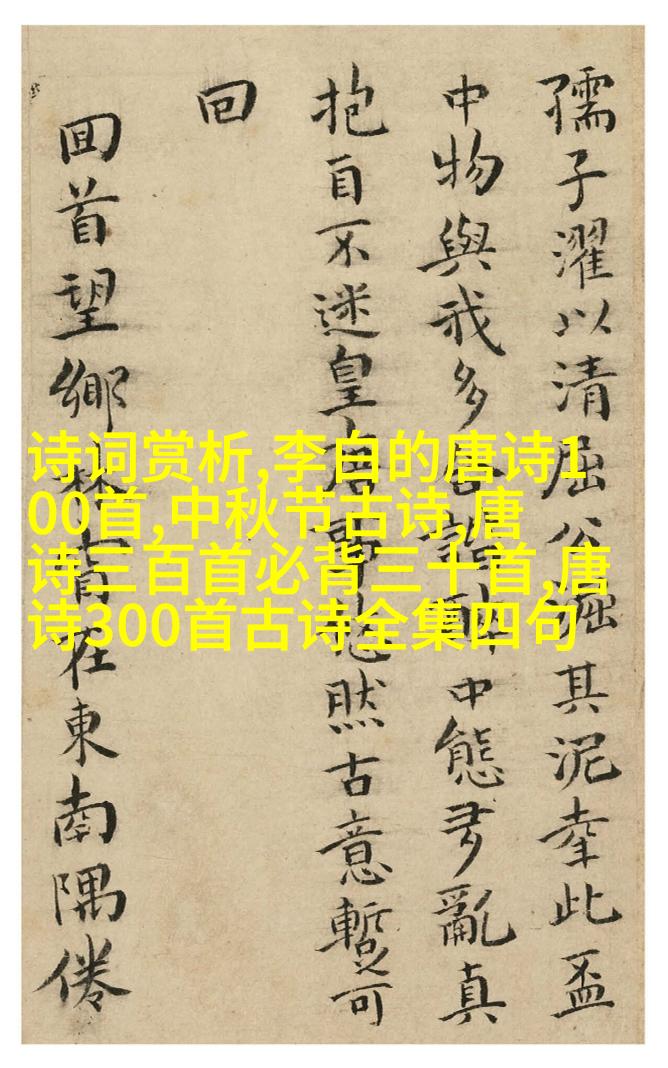 孺子濯以清屈公其泥幸此盃
中物與我多合諧醉中態多亂真
抱自不迷皇然古意暫可
回
回首望鄉在東南隅倦
诗词赏析,李白的唐诗1
00首,中秋节古诗,唐
诗三百首必背三十首,唐
诗300首古诗全集四句